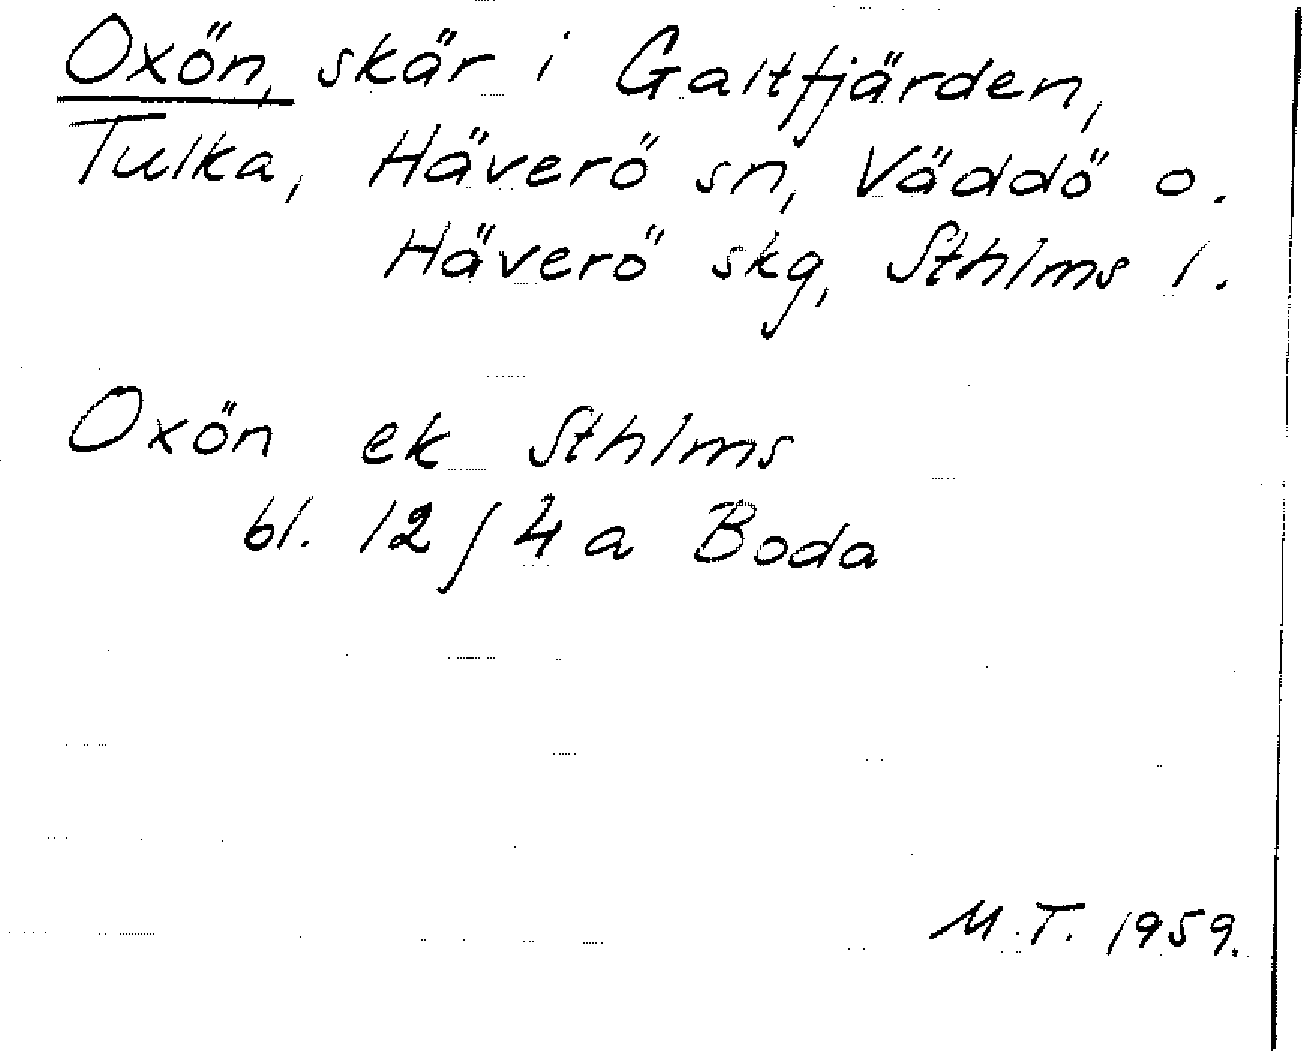 Oxön, skär i Galtfjärden,
Tulka, Häverö sn, Väddö o.
Häverö skg, Sthlms l.
Oxön ek Sthlms
bl. 12/4a Boda
M.T. 1959.